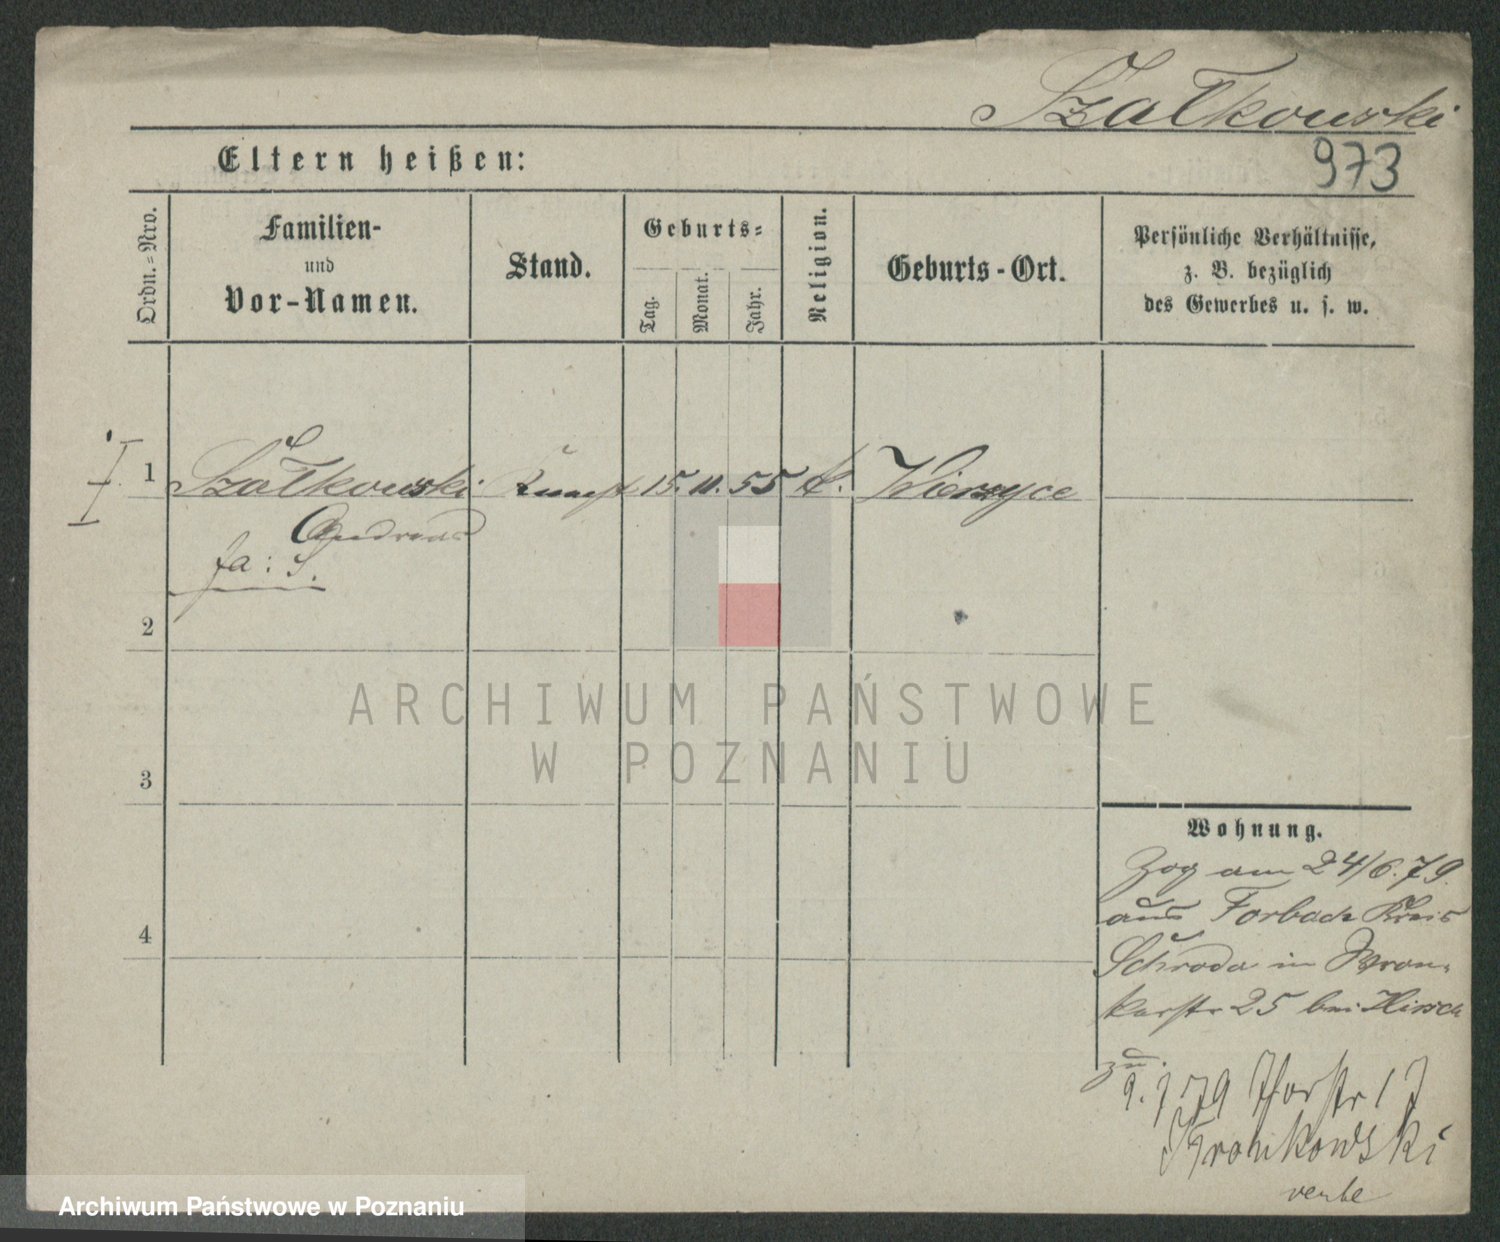 Szalkowski
973
Eltern heißen:
Ordn.=Nro.
Familien-
und
Vor-Namen.
Stand.
Geburts=
Tag.
Monat.
Jahr.
Religion.
Geburts-Ort.
Persönliche Verhältnisse,
z. B. bezüglich
des Gewerbes u. s. w.
I
1 Szalkowski 15. 11. 55 k.
Andreas
fa: S.
2
3
4
ARCHIWUM PAŃSTWOWE
W POZNANIU
Wohnung.
Zog am 24/6.79.
aus Forbach Kreis
Schroda in Wron-
kerstr 25 bei Hirsch
zu.
9. 7 79 17
Archiwum Państwowe w Poznaniu